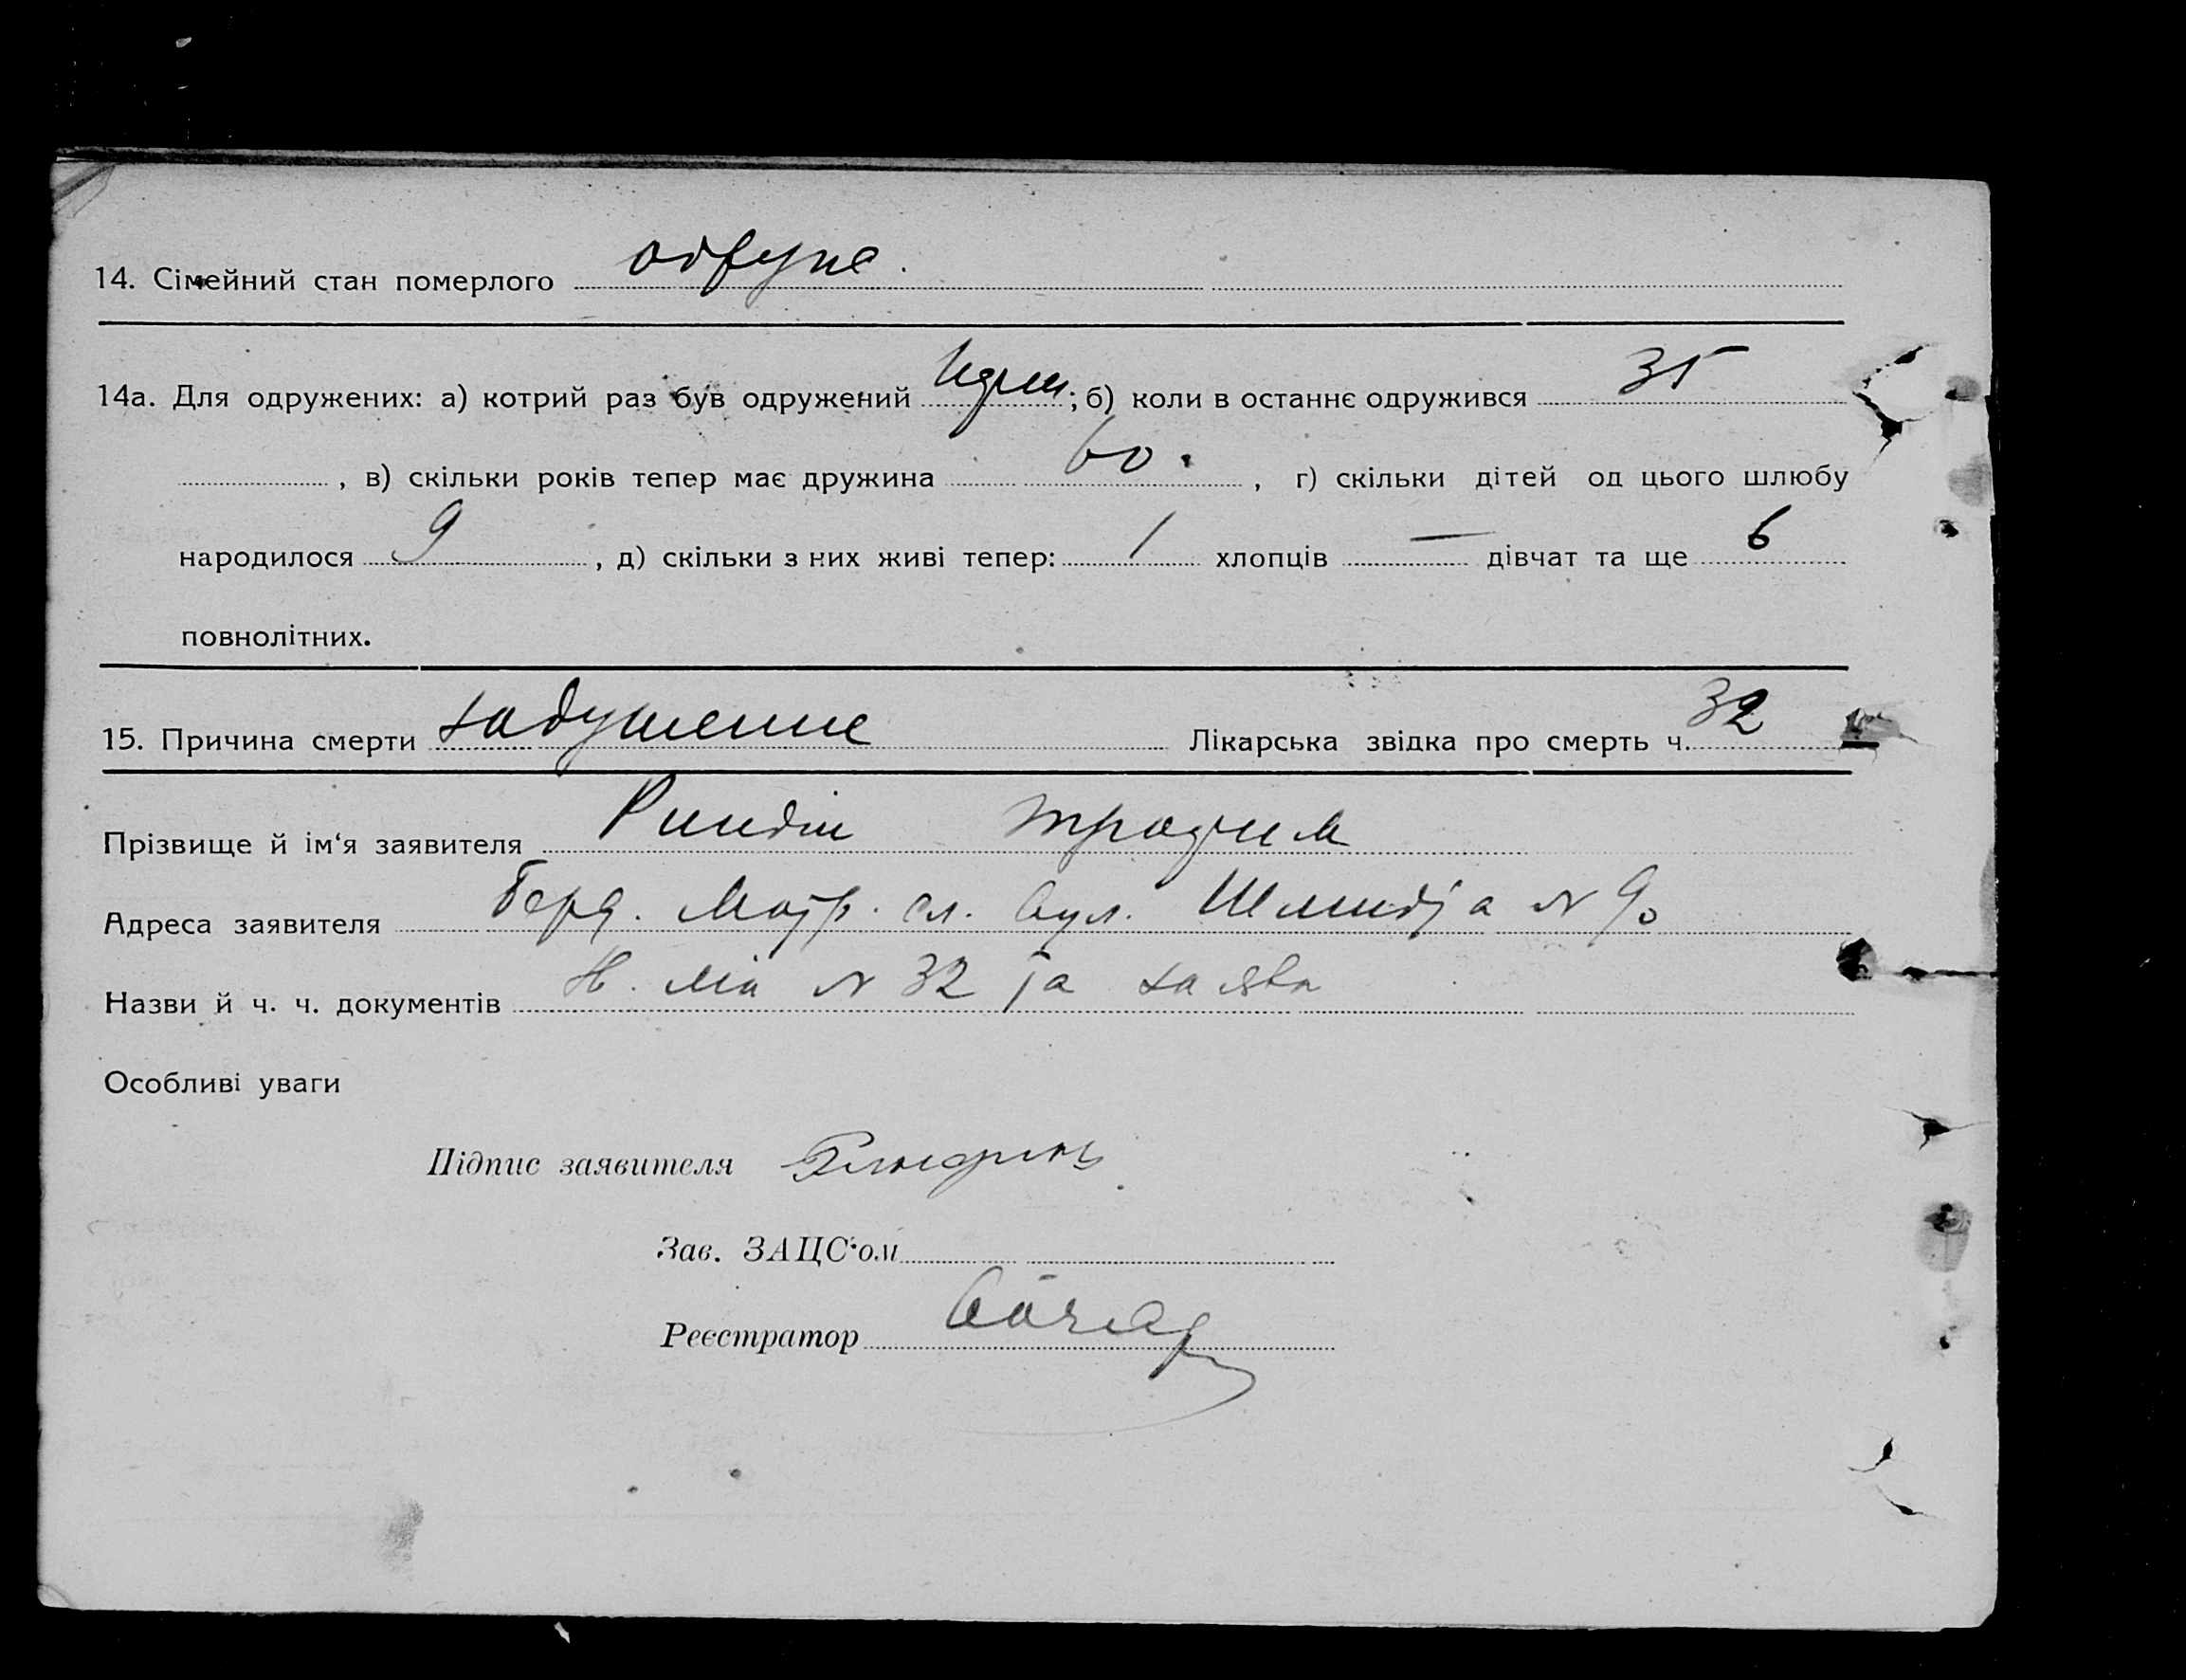 14. Сімейний стан померлого
14а. Для одружених: а) котрий раз був одружений ; б) коли в останнє одружився 35
, в) скільки років тепер має дружина 60. , г) скільки дітей од цього шлюбу
народилося 9 , д) скільки з них живі тепер: 1 хлопців — дівчат та ще 6
повнолітних.
15. Причина смерти задушение Лікарська звідка про смерть ч. 32
Прізвище й ім‘я заявителя
Адреса заявителя Берд. сл. вул. Шмидта N 90
Назви й ч. ч. документів N 32 та заява
Особливі уваги
Підпис заявителя
Зав. ЗАЦС‘ом
Реєстратор